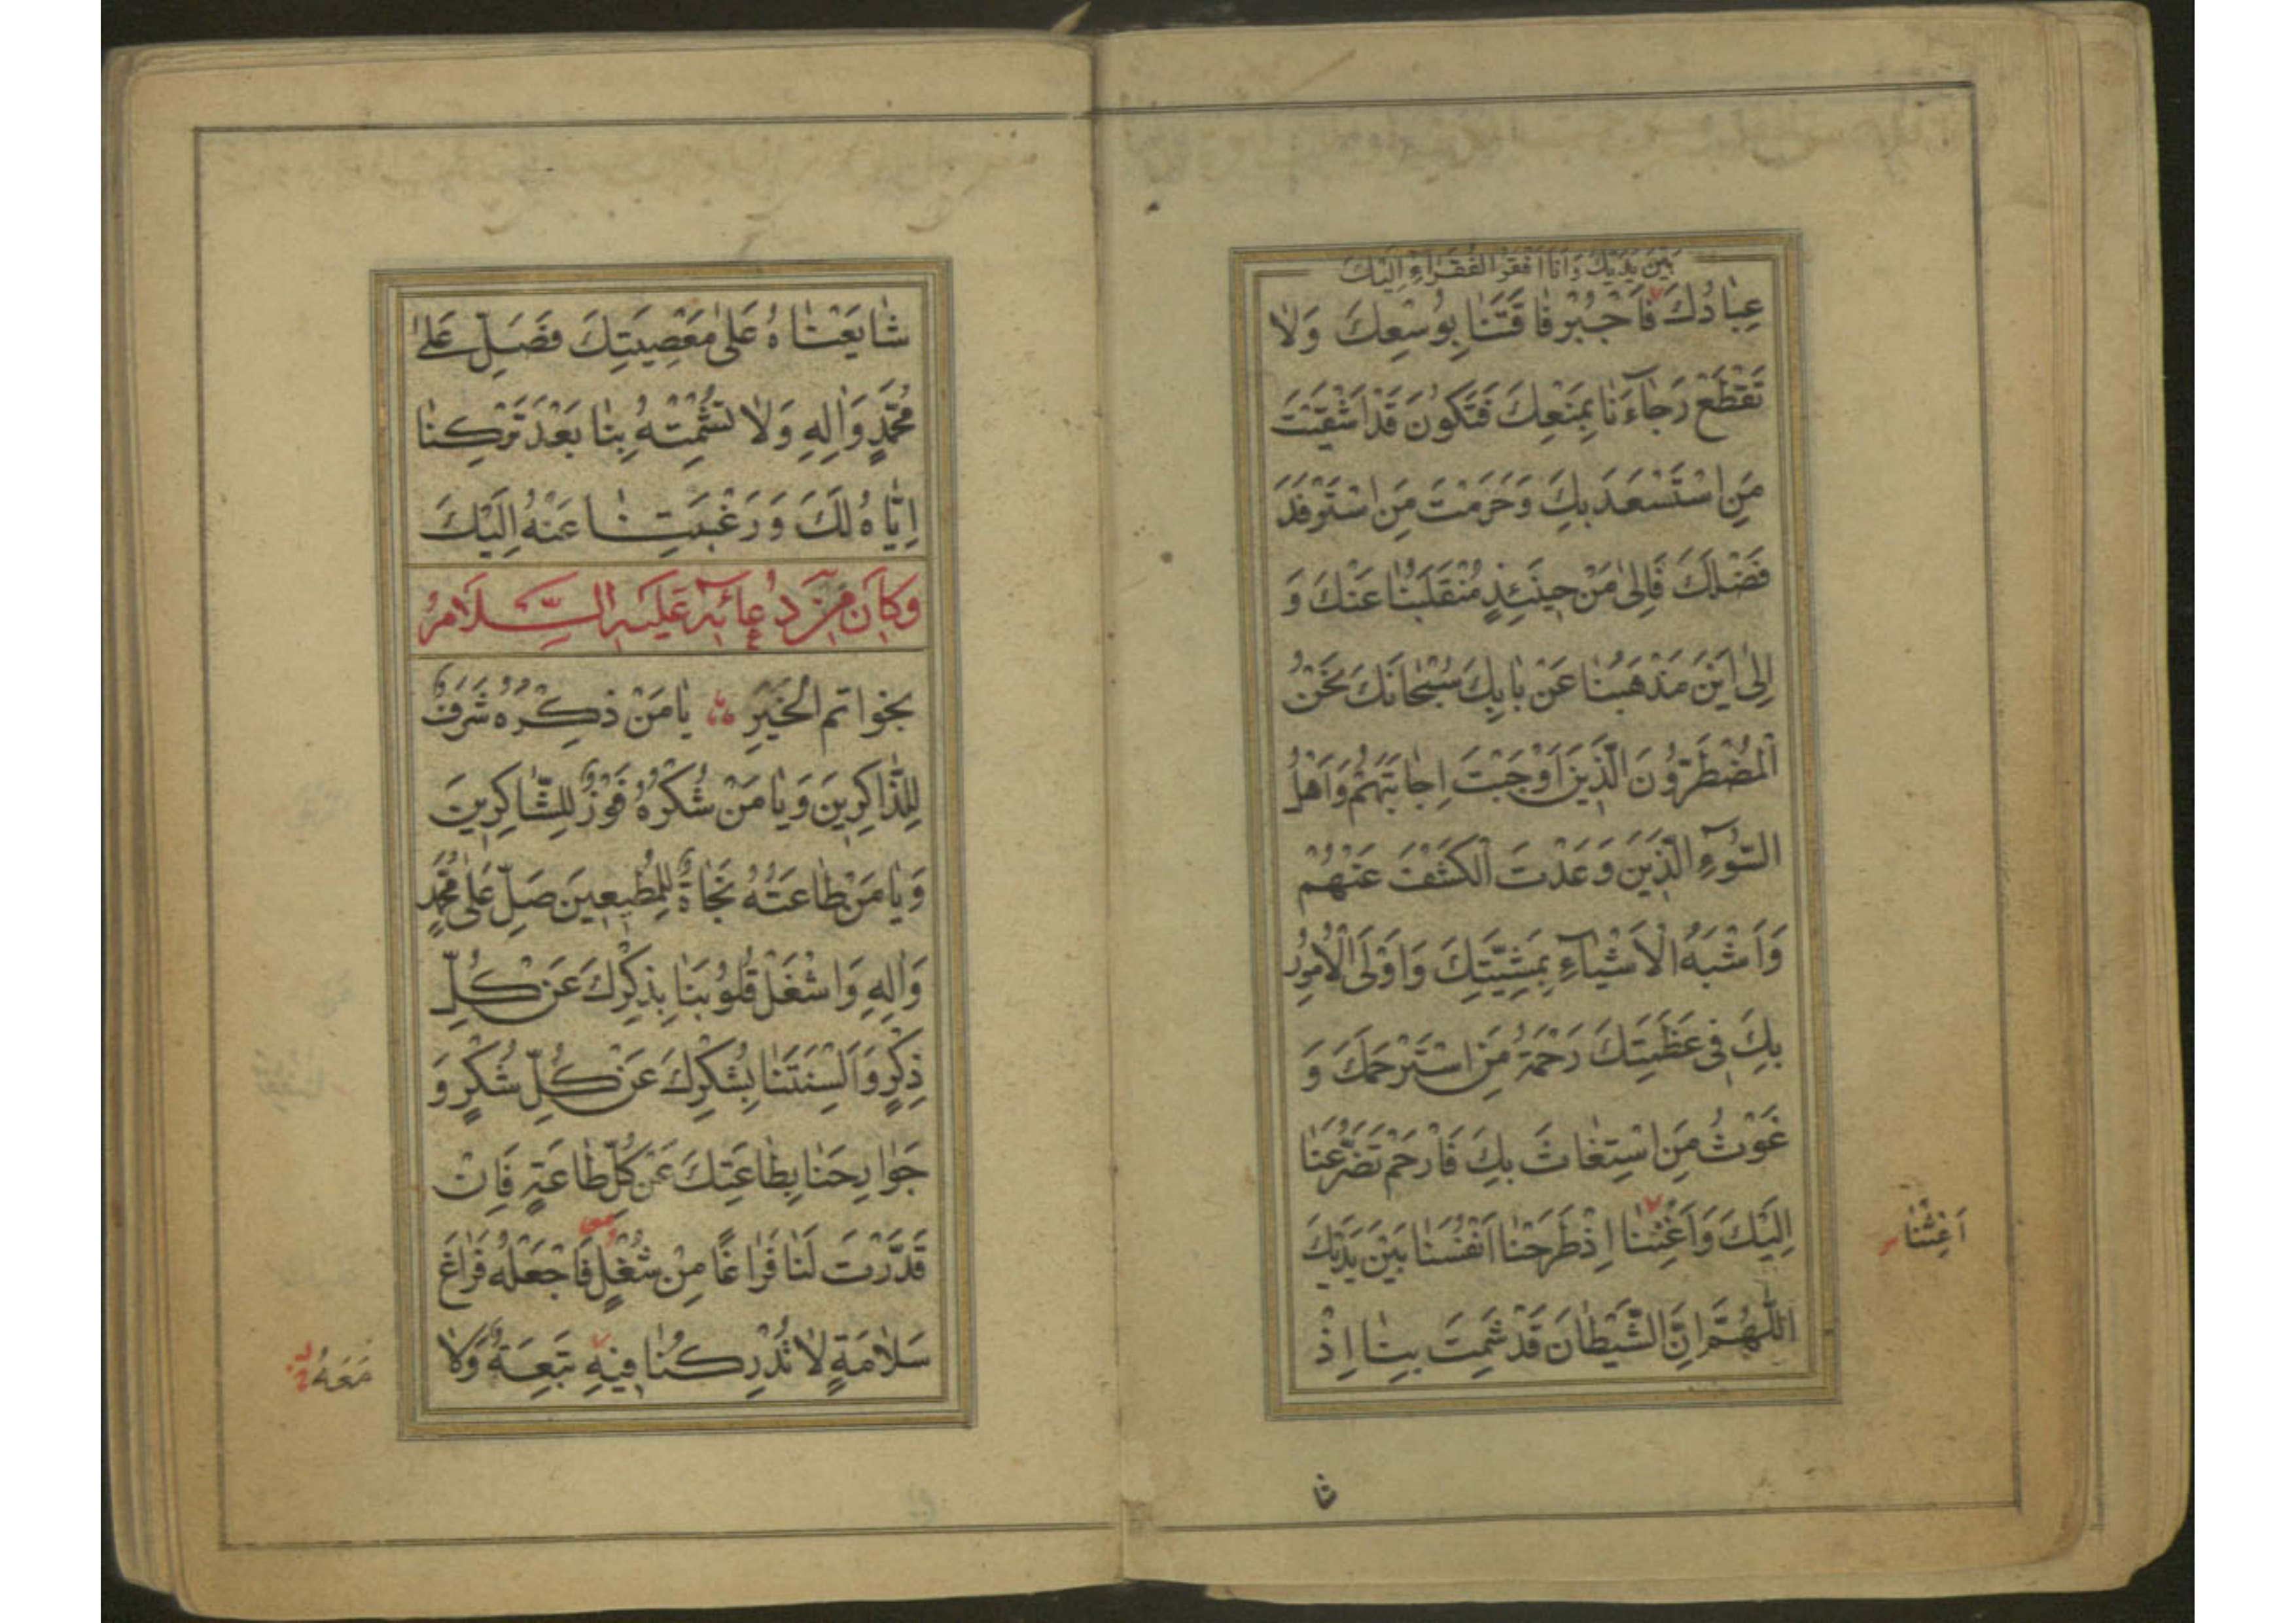 بَيْنَ يَدَيْكَ وَاَنَا اَفْقَرُ الْفُقَرَاءِ اِلَيْكَ
عِبَادُكَ فَاجْبُرْ فَاقَتَنَا بِوُسْعِكَ وَلَا
تَقْطَعْ رَجَاءَنَا بِمَنْعِكَ فَتَكُونَ قَدْ اَشْقَيْتَ
مَنِ اسْتَسْعَدَ بِكَ وَحَرَمْتَ مَنِ اسْتَرْفَدَ
فَضْلَكَ فَاِلٰى مَنْ حِينَئِذٍ مُنْقَلَبُنَا عَنْكَ وَ
اِلٰى اَيْنَ مَذْهَبُنَا عَنْ بَابِكَ سُبْحَانَكَ نَحْنُ
الْمُضْطَرُّونَ الَّذِينَ اَوْجَبْتَ اِجَابَتَهُمْ وَاَهْلُ
السُّوءِ الَّذِينَ وَعَدْتَ الْكَشْفَ عَنْهُمْ
وَاَشْبَهُ الْاَشْيَاءِ بِمَشِيَّتِكَ وَاَوْلَى الْاُمُورِ
بِكَ فِى عَظَمَتِكَ رَحْمَةُ مَنِ اسْتَرْحَمَكَ وَ
غَوْثُ مَنِ اسْتَغَاثَ بِكَ فَارْحَمْ تَضَرُّعَنَا
اِلَيْكَ وَاَغْنِنَا اِذْ طَرَحْنَا اَنْفُسَنَا بَيْنَ يَدَيْكَ
اَغِثْنَا
اَللّٰهُمَّ اِنَّ الشَّيْطَانَ قَدْ شَمِتَ بِنَا اِذْ
شا
شَايَعْنَاهُ عَلٰى مَعْصِيَتِكَ فَصَلِّ عَلٰى
مُحَمَّدٍ وَاٰلِهِ وَلَا تُشْمِتْهُ بِنَا بَعْدَ تَرْكِنَا
اِيَّاهُ لَكَ وَرَغْبَتِنَا عَنْهُ اِلَيْكَ
وَكَانَ مِنْ دُعَائِهِ عَلَيْهِ السَّلَامُ
بخواتم الْخَيْرِ يَا مَنْ ذِكْرُهُ شَرَفٌ
لِلذَّاكِرِينَ وَيَا مَنْ شُكْرُهُ فَوْزٌ لِلشَّاكِرِينَ
وَيَا مَنْ طَاعَتُهُ نَجَاةٌ لِلْمُطِيعِينَ صَلِّ عَلٰى مُحَمَّدٍ
وَاٰلِهِ وَاشْغَلْ قُلُوبَنَا بِذِكْرِكَ عَنْ كُلِّ
ذِكْرٍ وَاَلْسِنَتَنَا بِشُكْرِكَ عَنْ كُلِّ شُكْرٍ وَ
جَوَارِحَنَا بِطَاعَتِكَ عَنْ كُلِّ طَاعَةٍ فَاِنْ
قَدَّرْتَ لَنَا فَرَاغًا مِنْ شُغْلٍ فَاجْعَلْهُ فَرَاغَ
سَلَامَةٍ لَا تُدْرِكُنَا فِيهِ تَبِعَةٌ وَلَا
مَعَهُ